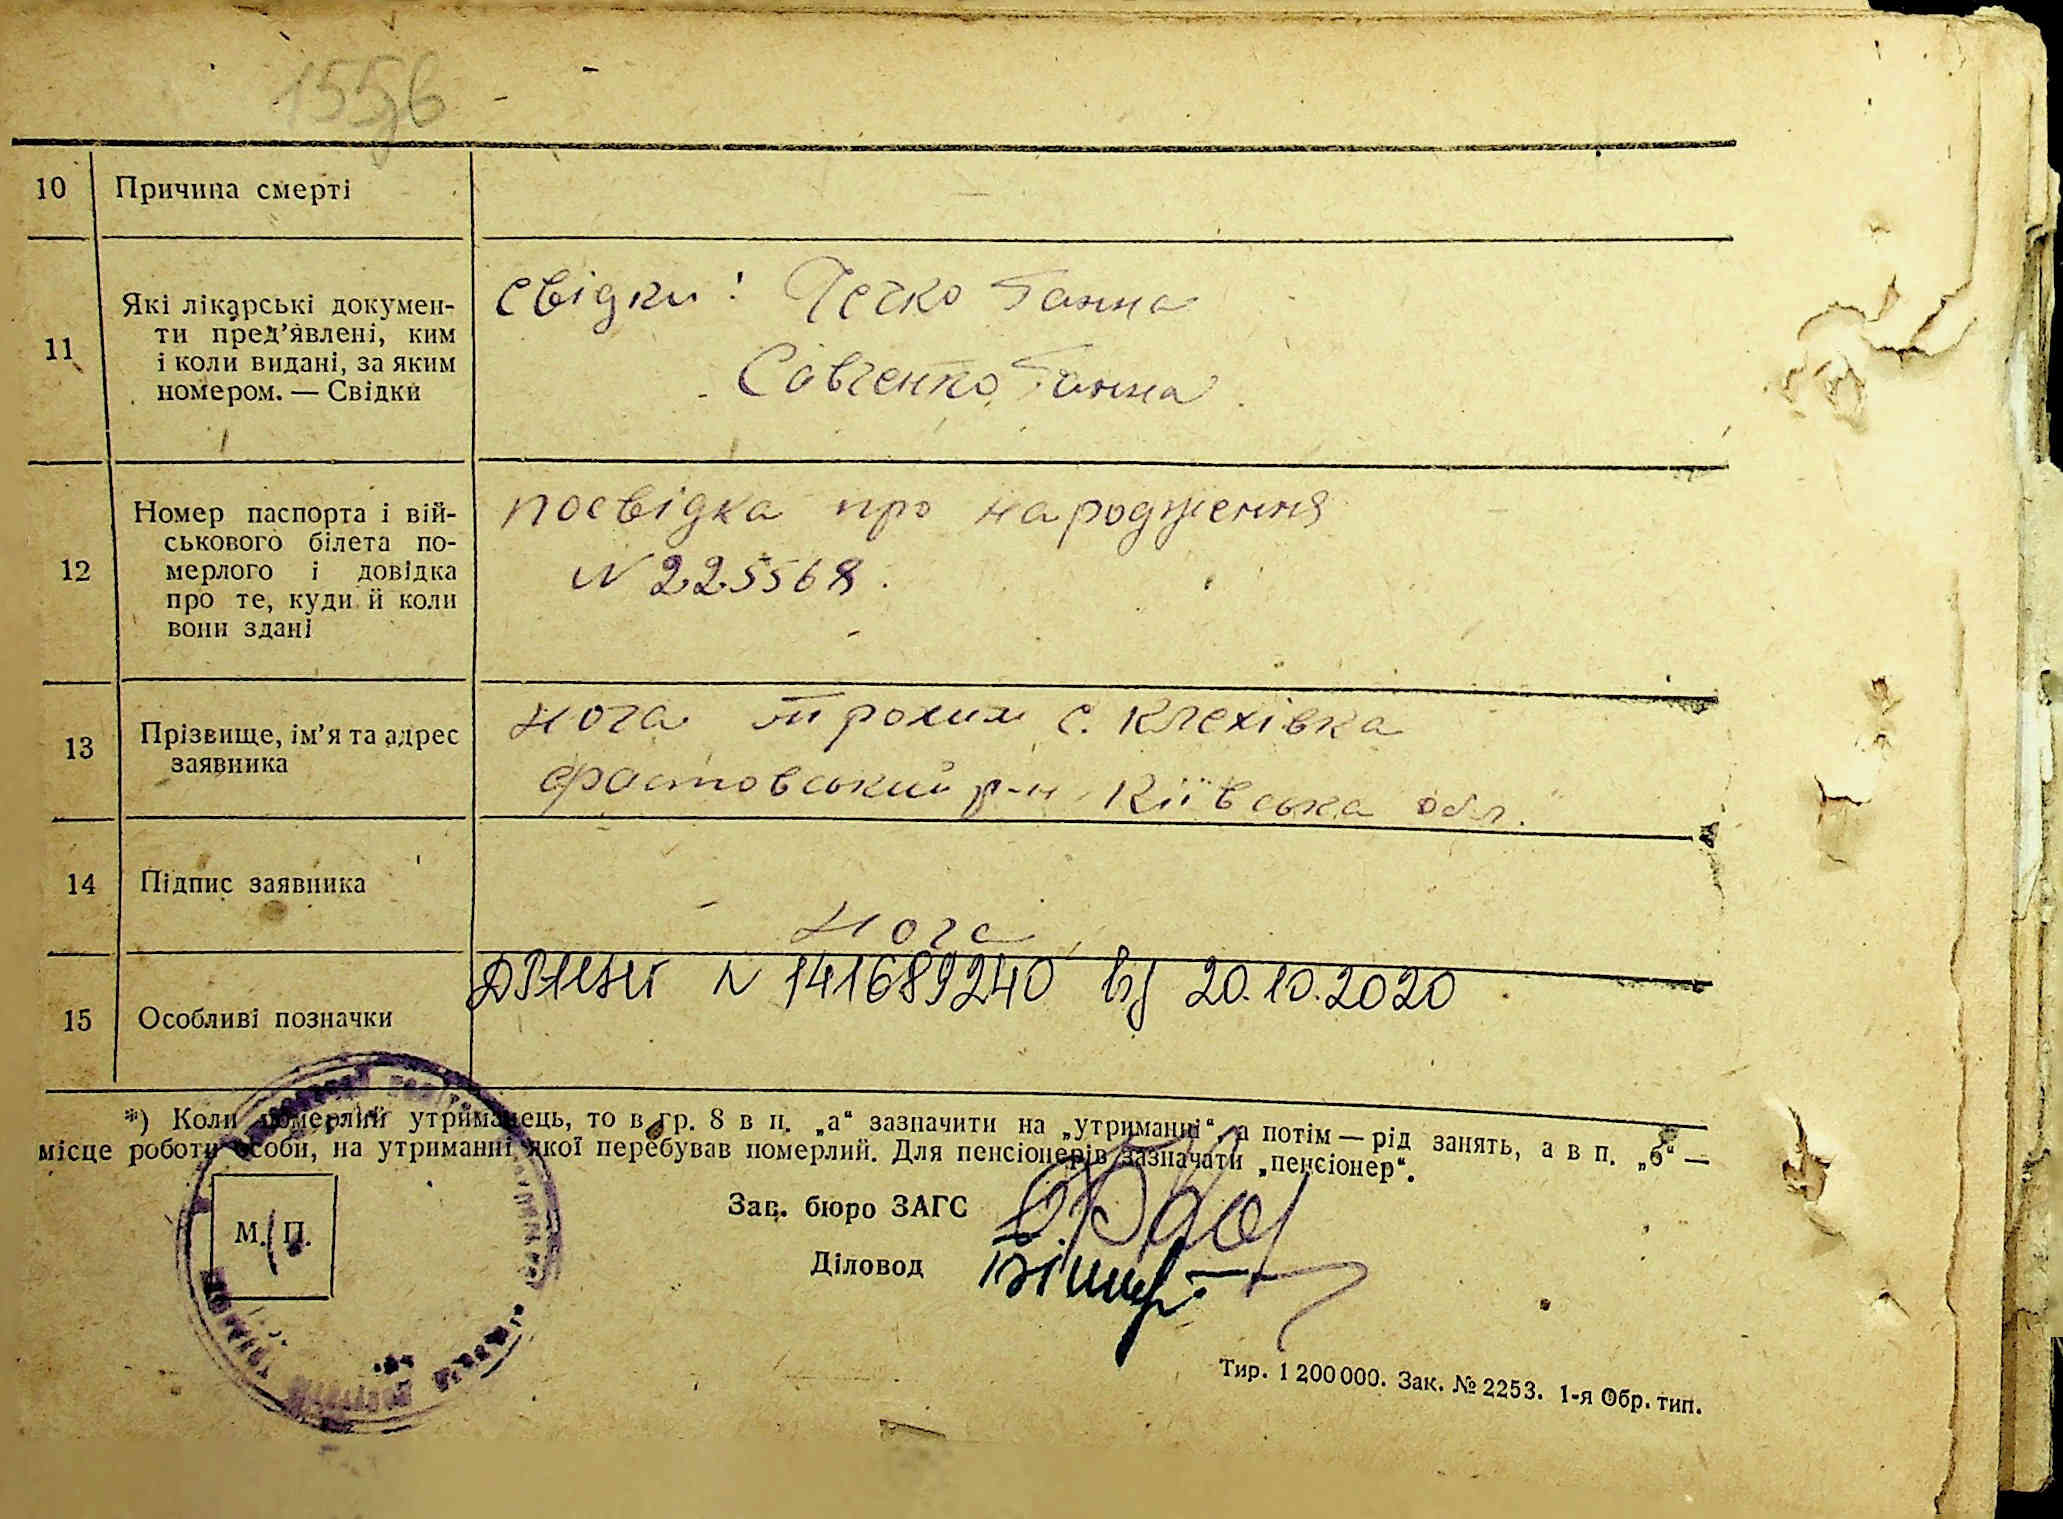 155зв
10 Причина смерті
11 Які лікарські докумен-
ти пред’явлені, ким
і коли видані, за яким
номером. — Свідки
свідки: Печко Ганна
Савченко Ганна
12 Номер паспорта і вій-
ськового білета по-
мерлого і довідка
про те, куди й коли
вони здані
посвідка про народження
N 225568.
13 Прізвище, ім’я та адрес
заявника
Нога Трохим с. Клехівка
Фастовський р-н Київська обл.
14 Підпис заявника
Нога
15 Особливі позначки
N 141689240 від 20.10.2020
*) Коли померлий утриманець, то в гр. 8 в п. „а“ зазначити на „утриманні“, а потім — рід занять, а в п. „б“ —
місце роботи особи, на утриманні якої перебував померлий. Для пенсіонерів зазначати „пенсіонер“.
М. П.
Зав. бюро ЗАГС
Діловод
Тир. 1 200 000. Зак. № 2253. 1-я Обр. тип.